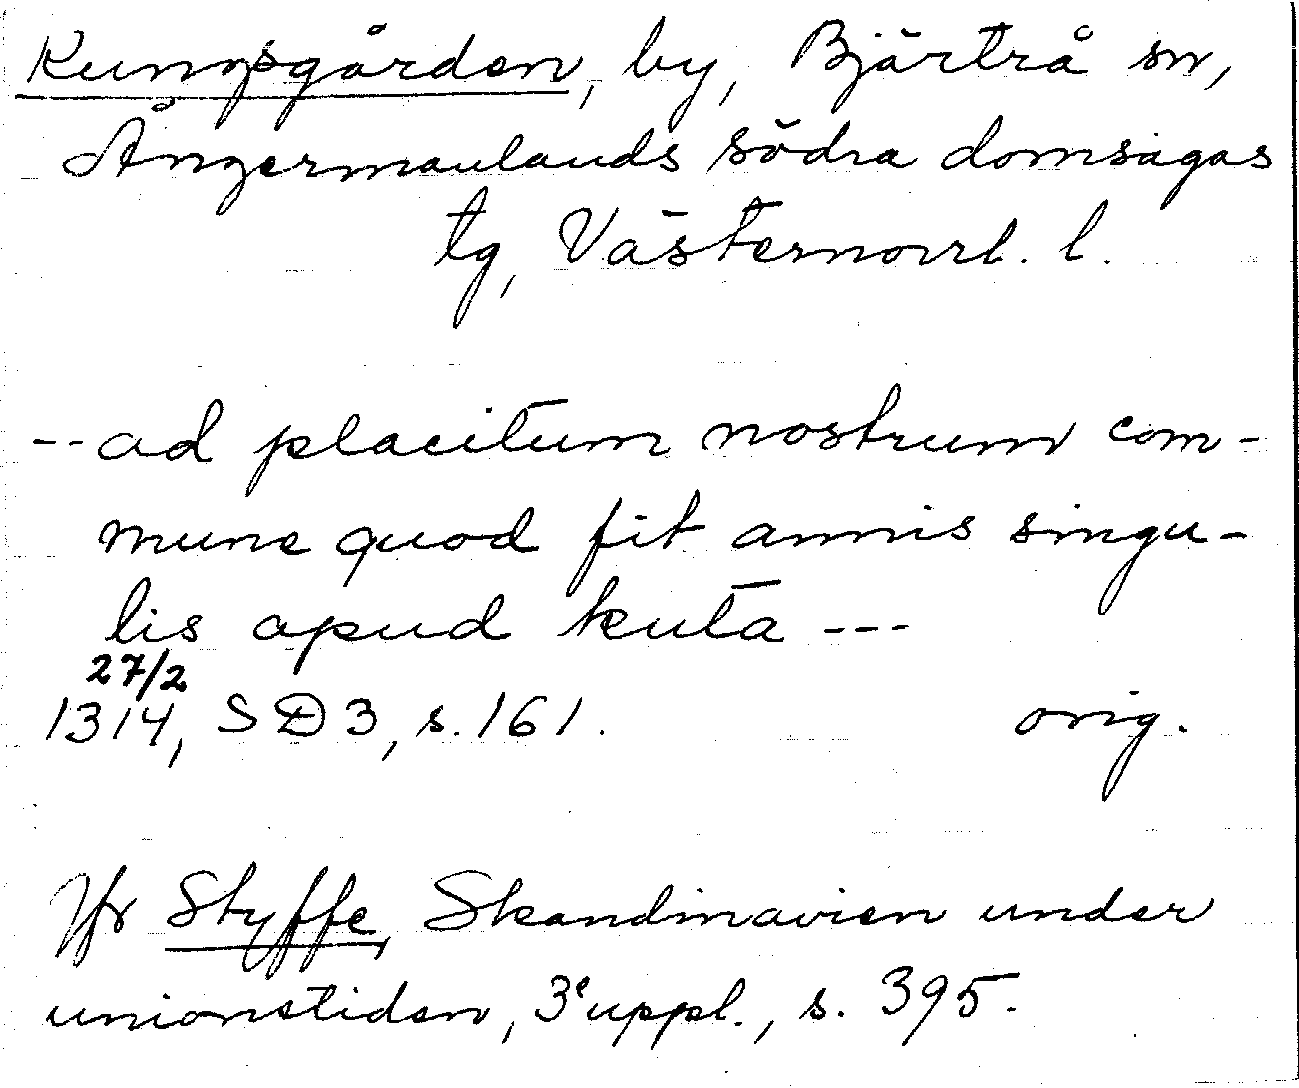 Kungsgården, by, Bjärtrå sn,
Ångermanlands södra domsagas
tg, Västernorrl. l.
-- ad placitum nostrum com-
mune quod fit annis singu-
lis apud kuta ---
27/2
1314, SD 3, s. 161. orig.
Jfr Styffe, Skandinavien under
unionstiden, 3e uppl., s. 395.